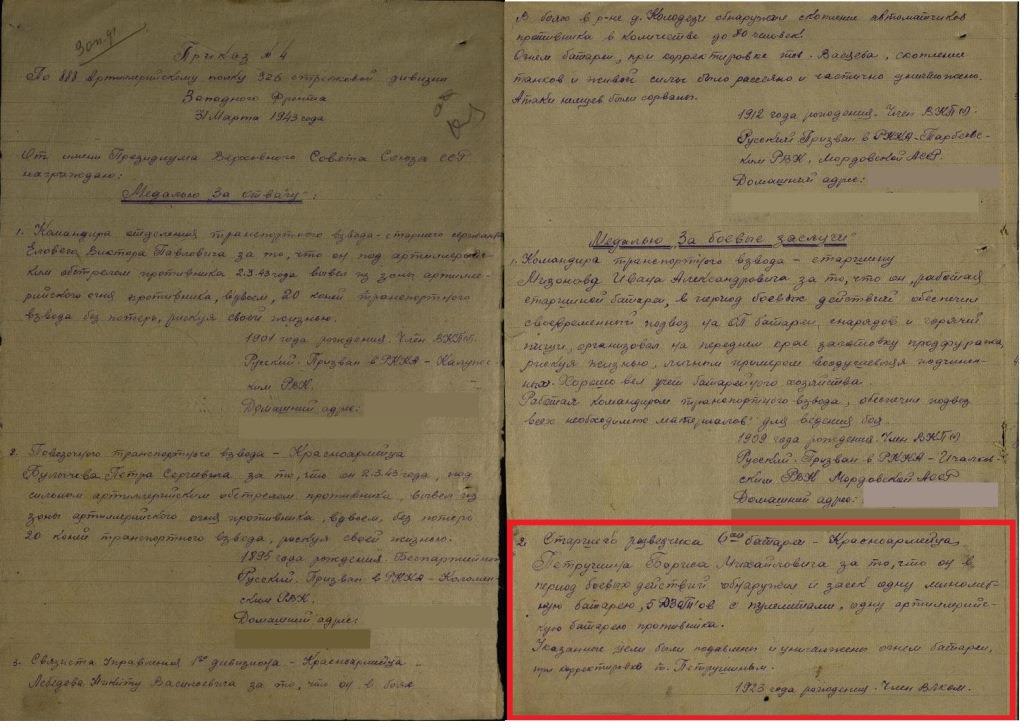 Зап.ф.
Приказ № 4
По 888 Артиллерийскому полку 326 стрелковой дивизии
Западного Фронта
31 Марта 1943 года
От имени Президиума Верховного Совета Союза ССР
награждаю:
"Медалью За отвагу":
1. Командира отделения транспортного взвода - старшего сержанта
Елового Виктора Павловича за то, что он под артиллерийс-
ким обстрелом противника 2.3.43 года вывел из зоны артилле-
рийского огня противника, вдвоем, 20 коней транспортного
взвода без потерь, рискуя своей жизнью.
1901 года рождения. Член ВКП(б).
Русский. Призван в РККА - Калужс-
ким РВК.
Домашний адрес:
2. Повозочного транспортного взвода - Красноармейца
Булычева Петра Сергеевича за то, что он 2.3.43 года, под
сильным артиллерийским обстрелом противника, вывел из
зоны артиллерийского огня противника, вдвоем, без потерь
20 коней транспортного взвода, рискуя своей жизнью.
1895 года рождения. Беспартийный
Русский. Призван в РККА - Коломен-
ским РВК.
Домашний адрес:
3. Связиста Управления 1го дивизиона - Красноармейца
Лебедева Никиту Васильевича за то, что он в боях
В боях в р-не д. Колодези обнаружил скопление автоматчиков
противника в количестве до 80 человек.
Огнем батареи, при корректировке тов. скопление
танков и живой силы было рассеяно и частично уничтожено.
Атаки немцев были сорваны.
1912 года рождения. Член ВКП(б)
Русский. Призван в РККА - Торбеевс-
ким РВК, Мордовской АССР.
Домашний адрес:
"Медалью За боевые заслуги"
1. Командира транспортного взвода - старшину
Мизонова Ивана Александровича за то, что он, работая
старшиной батареи, в период боевых действий обеспечил
своевременный подвоз на ОП батареи, снарядов и горячей
пищи, организовал на переднем крае заготовку продфуража,
рискуя жизнью, личным примером воодушевляя подчинен-
ных. Хорошо вел учет батарейного хозяйства.
Работая командиром транспортного взвода, обеспечил подвоз
всех необходимых материалов для ведения боя.
1909 года рождения. Член ВКП(б)
Русский. Призван в РККА - Ичалков-
ским РВК Мордовской АССР
Домашний адрес:
2. Старшего разведчика 6ой батареи - Красноармейца
Петрушина Бориса Михайловича за то, что он в
период боевых действий обнаружил и засек одну миномет-
ную батарею, 5 ДЗОТ'ов с пулеметами, одну артиллерийс-
кую батарею противника.
Указанные цели были подавлены и уничтожены огнем батареи,
при корректировке т. Петрушиным.
1923 года рождения. Член ВЛКСМ.